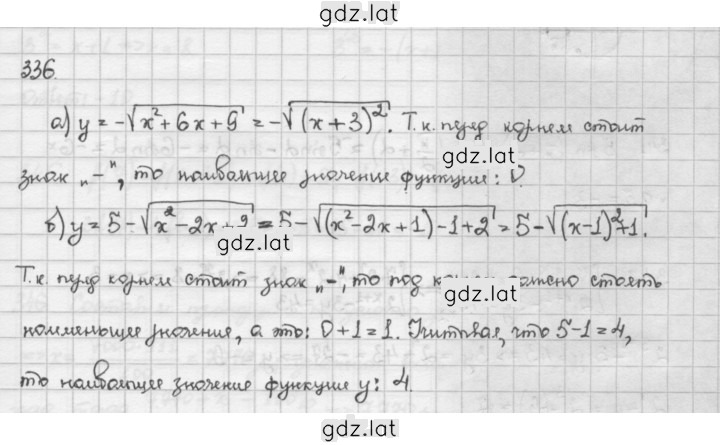 gdz.lat
336.
а) y = -√(x²+6x+9) = -√((x+3)²). Т.к. перед корнем стоит
gdz.lat
знак „-", то наибольшее значение функции: 0
б) y = 5 - √(x²-2x+2) = 5 - √((x²-2x+1)-1+2) = 5 - √((x-1)²+1).
gdz.lat
Т.к. перед корнем стоит знак „-", то под должно стоять
gdz.lat
наименьшее значение, а это: 0+1=1. Учитывая, что 5-1=4,
то наибольшее значение функции y: 4.
gdz.lat